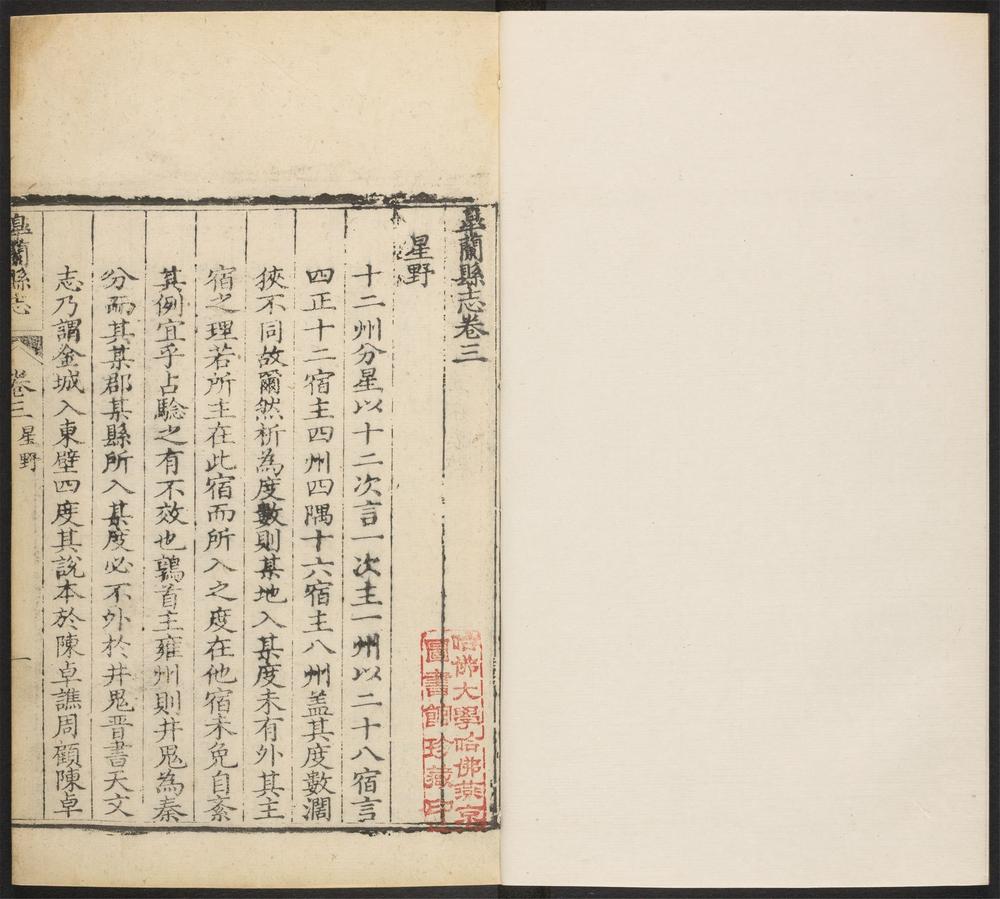 皐蘭縣志卷三
星野
十二州分星以十二次言一次主一州以二十八宿言
四正十二宿主四州四隅十六宿主八州盖其度數濶
狹不同故爾然析為度數則某地入某度未有外其主
宿之理若所主在此宿而所入之度在他宿未免自紊
其例宜乎占騐之有不效也鶉首主雍州則井鬼為秦
分而其某郡某縣所入某度必不外於井鬼晋書天文
志乃謂金城入東壁四度其說本於陳卓譙周顧陳卓
皐蘭縣志
卷三
星野
一
哈佛大學哈佛燕京
圖書館珍藏印